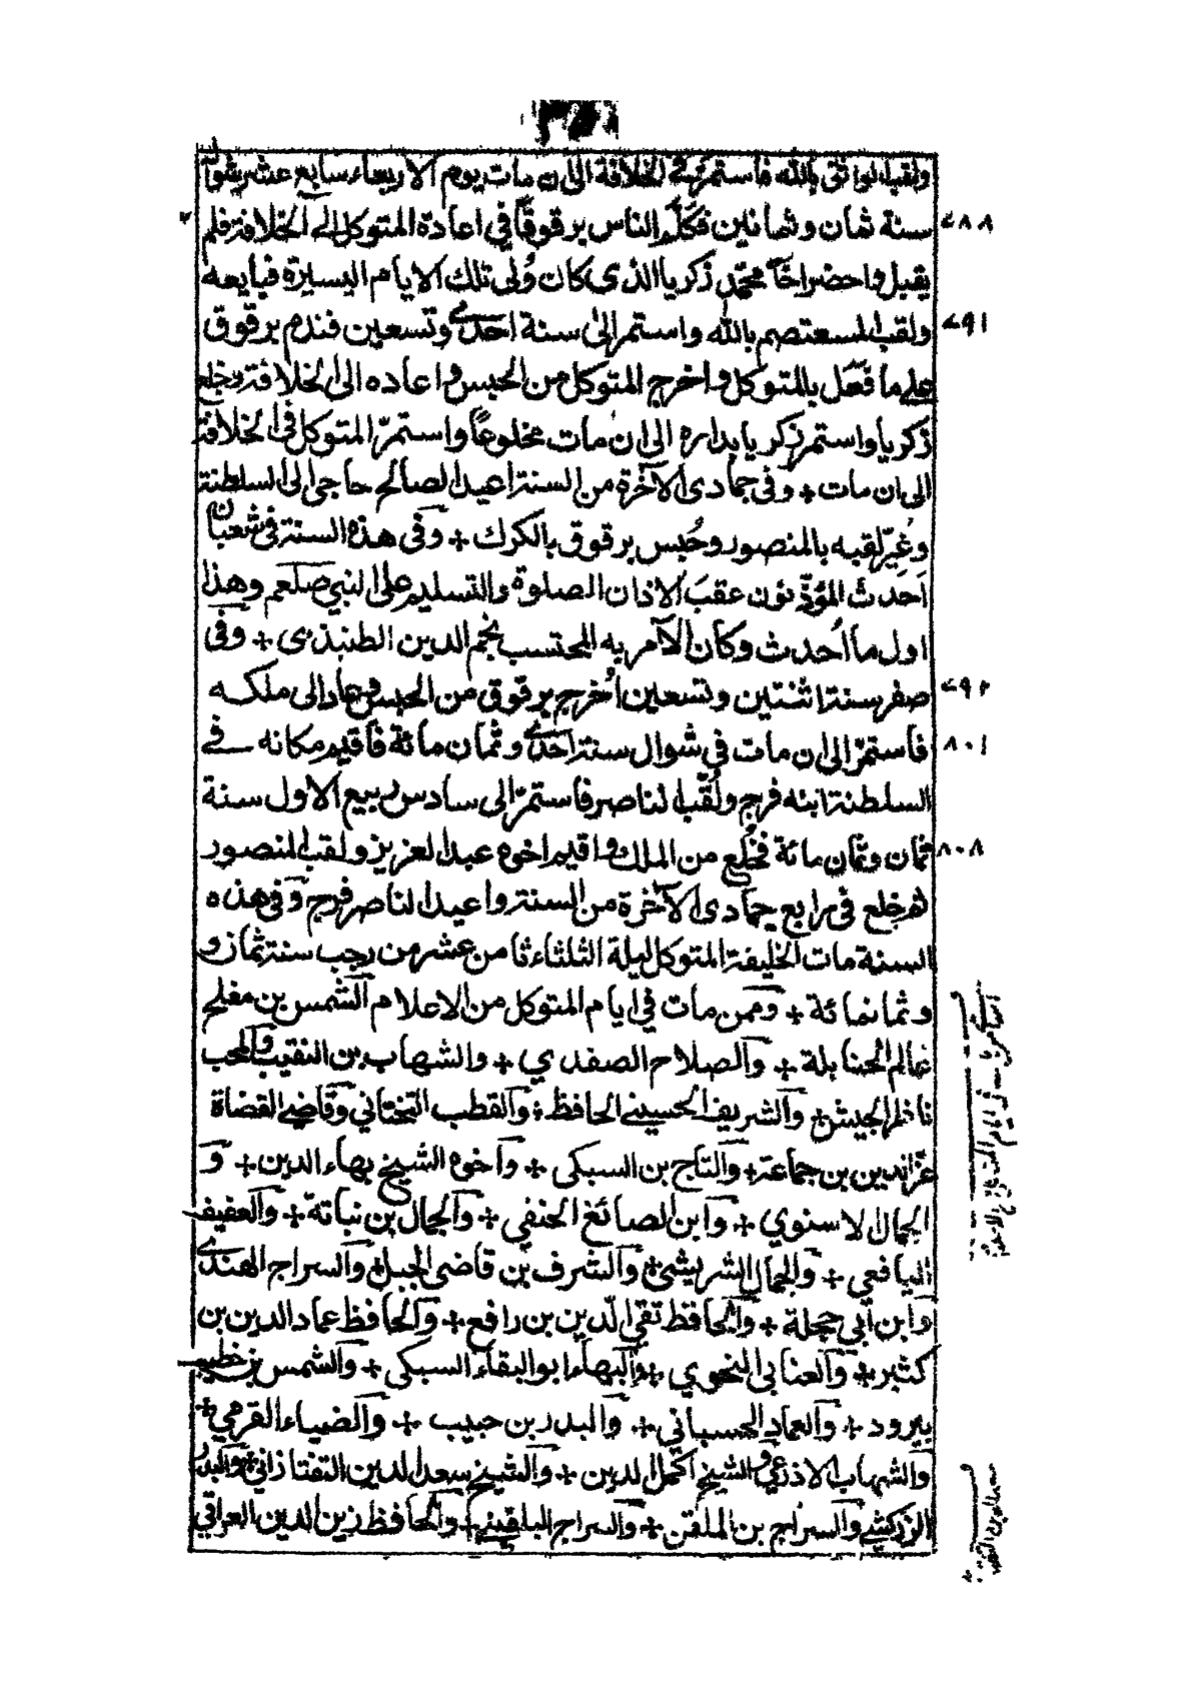 ولقب الواثق بالله فاستمر في الخلافة الى ان مات يوم الاربعاء سابع عشر شوال
سنة ثمان وثمانين فكلّم الناس برقوقاً في اعادة المتوكل الى الخلافة فلم ٧٨٨
يقبل واحضر اخا محمّد زكريا الذى كان وُلى تلك الايام اليسيرة فبايعه
ولقب المستعصم بالله واستمر الىٰ سنة احدىٰ وتسعين فندم برقوق ٧٩١
على ما فعل بالمتوكل واخرج المتوكل من الحبس واعاده الى الخلافة وخلع
زكريا واستمر زكريا بداره الى ان مات مخلوعاً واستمرّ المتوكل فى الخلافة
الى ان مات + وفى جمادى الآخرة من السنة اعيد الصالح حاجى الى السلطنة
وغُيّر لقبه بالمنصور وحُبس برقوق بالكرك + وفى هذه السنة فى شعبان
احدث المؤذّنون عقبَ الاذان الصلوة والتسليم على النبي صلعم وهذا
اول ما اُحدث وكان الآمر به المحتسب نجم الدين الطنبذى + وفى
صفر سنة اثنتين وتسعين اُخرج برقوق من الحبس وعاد الى ملكه ٧٩٢
فاستمرّ الى ان مات في شوال سنة احدىٰ وثمان مائة فاقيم مكانه فے ٨٠١
السلطنة ابنه فرج ولُقّب الناصر فاستمرّ الى سادس ربيع الاول سنة
ثمان وثمان مائة فخُلع من الملك واقيم اخوه عبد العزيز ولقب المنصور ٨٠٨
ثم خلع فى رابع جمادى الآخرة من السنة واعيد الناصر فرج وفى هذه
السنة مات الخليفة المتوكل ليلة الثلثاء ثامن عشر من رجب سنة ثمان و
وثمانمائة + وممن مات في ايام المتوكل من الاعلام الشمس بن مفلح
عالم الحنابلة + والصلاح الصفدي + والشهاب بن النقيب والمحب
ناظر الجيش + والشريف الحسينے الحافظ + والقطب التحتانى وقاضے القضاة
عزّ الدين بن جماعة + والتاج بن السبكى + واخوه الشيخ بهاء الدين + و
الجمال الاسنوي + وابن الصائغ الحنفي + والجمال بن نباتة + والعفيف
اليافعي + والجمال الشريشى + والشرف بن قاضى الجبل + والسراج الهندے
وابن ابي حجلة + والحافظ تقي الدّين بن رافع + والحافظ عماد الدين بن
كثير + والعنابى النحوي + والبهاء ابو البقاء السبكى + والشمس بن خطيب
بيرود + والعماد الحسبانى + والبدر بن حبيب + والضياء القرمي +
والشهاب الاذرعي والشيخ اكمل الدين + والشيخ سعد الدين التفتازانى + والبدر
الزركشے والسراج بن الملقن + والسراج البلقينے + والحافظ زين الدين العراقي